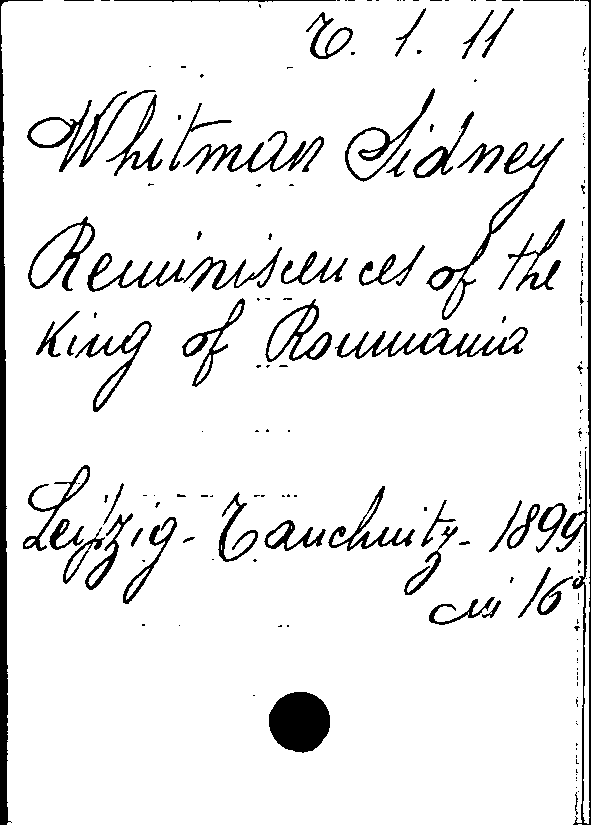 T. 1. 11
Whitman Sidney
Reminiscences of the
King of Roumania
Leipzig - Tauchnitz - 1899
in 16°